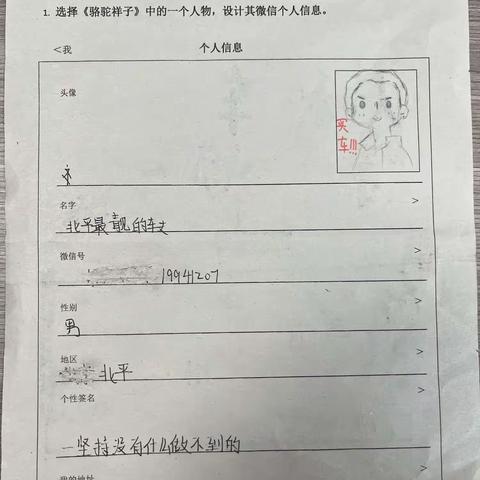 1. 选择《骆驼祥子》中的一个人物，设计其微信个人信息。
<我 个人信息
头像
买车!!!
名字 >
北平最靓的车夫
微信号 >
19941207
性别 >
男
地区 >
北平
个性签名 >
一坚持没有什么做不到的
我的地址 >